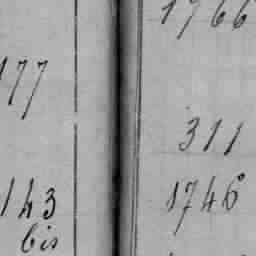 177
143
bis
1766
311
1746